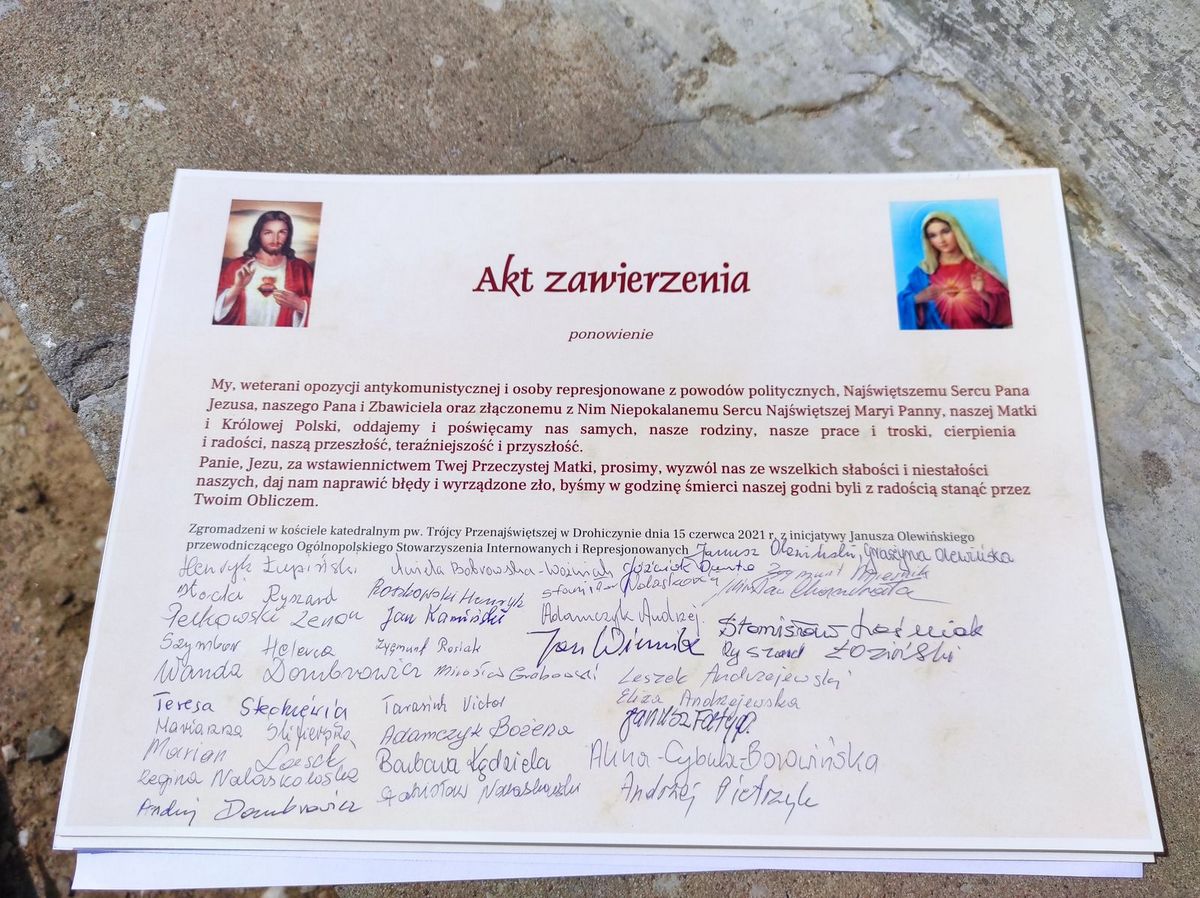 Akt zawierzenia
ponowienie
My, weterani opozycji antykomunistycznej i osoby represjonowane z powodów politycznych, Najświętszemu Sercu Pana
Jezusa, naszego Pana i Zbawiciela oraz złączonemu z Nim Niepokalanemu Sercu Najświętszej Maryi Panny, naszej Matki
i Królowej Polski, oddajemy i poświęcamy nas samych, nasze rodziny, nasze prace i troski, cierpienia
i radości, naszą przeszłość, teraźniejszość i przyszłość.
Panie, Jezu, za wstawiennictwem Twej Przeczystej Matki, prosimy, wyzwól nas ze wszelkich słabości i niestałości
naszych, daj nam naprawić błędy i wyrządzone zło, byśmy w godzinę śmierci naszej godni byli z radością stanąć przez
Twoim Obliczem.
Zgromadzeni w kościele katedralnym pw. Trójcy Przenajświętszej w Drohiczynie dnia 15 czerwca 2021 r. z inicjatywy Janusza Olewińskiego
przewodniczącego Ogólnopolskiego Stowarzyszenia Internowanych i Represjonowanych Janusz Olewiński, Grażyna Olewińska
Henryk Łupiński Aniela Bobrowska-Woźniak
Ryszard Roszkowski Henryk Stanisław Zygmunt
Pełkowski Zenon Jan Kamiński Adamczyk Andrzej Stanisław Leśniak
Szymbor Helena Zygmunt Rosiak Jan Ryszard Łoziński
Wanda Dombrowicz Mirosław Grabowski Leszek Andrzejewski
Teresa Steckiewicz Tarasiuk Victor Eliza Andrzejewska
Marianna Adamczyk Bożena Janusz
Marian Barbara Kędziela Alina-Cybula-Borowińska
Regina Stanisław Andrzej Pietrzyk
Andrzej Dombrowicz